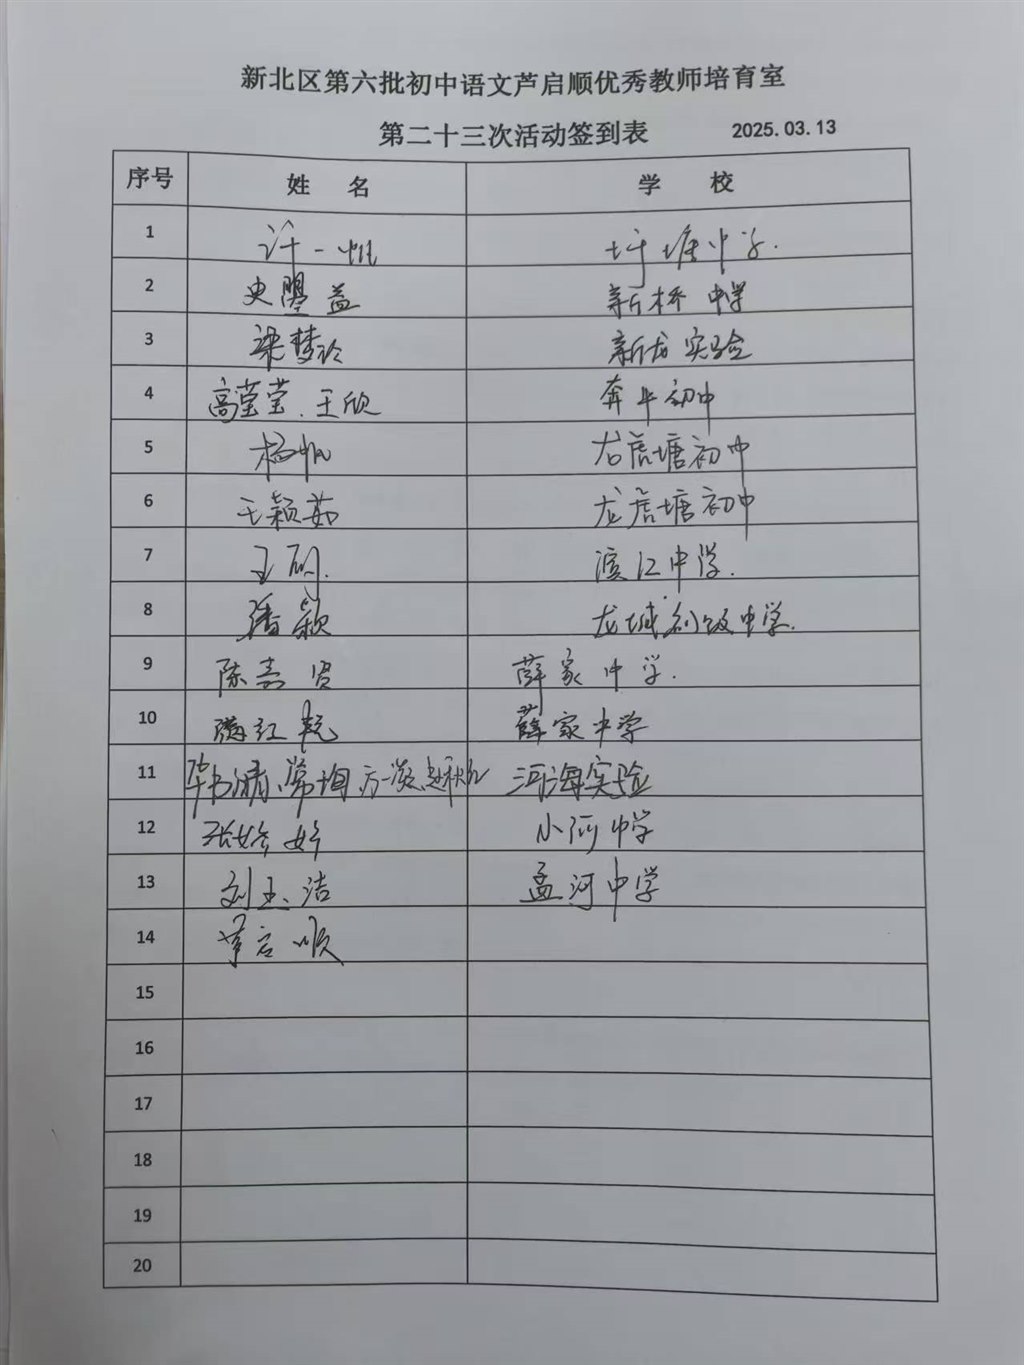 新北区第六批初中语文芦启顺优秀教师培育室
第二十三次活动签到表 2025.03.13
序号 姓 名 学 校
1 许一帆 圩塘中学.
2 史曌益 新桥中学
3 梁梦玲 新龙实验
4 高莹莹.王欣 奔牛初中
5 杨帆 龙虎塘初中
6 王颖茹 龙虎塘初中
7 王丽. 滨江中学.
8 潘颖 龙城初级中学.
9 陈嘉贤 薛家中学.
10 红艳 薛家中学
11 常梅 河海实验
12 张婷婷 小河中学
13 刘玉洁 孟河中学
14 芦启顺
15
16
17
18
19
20